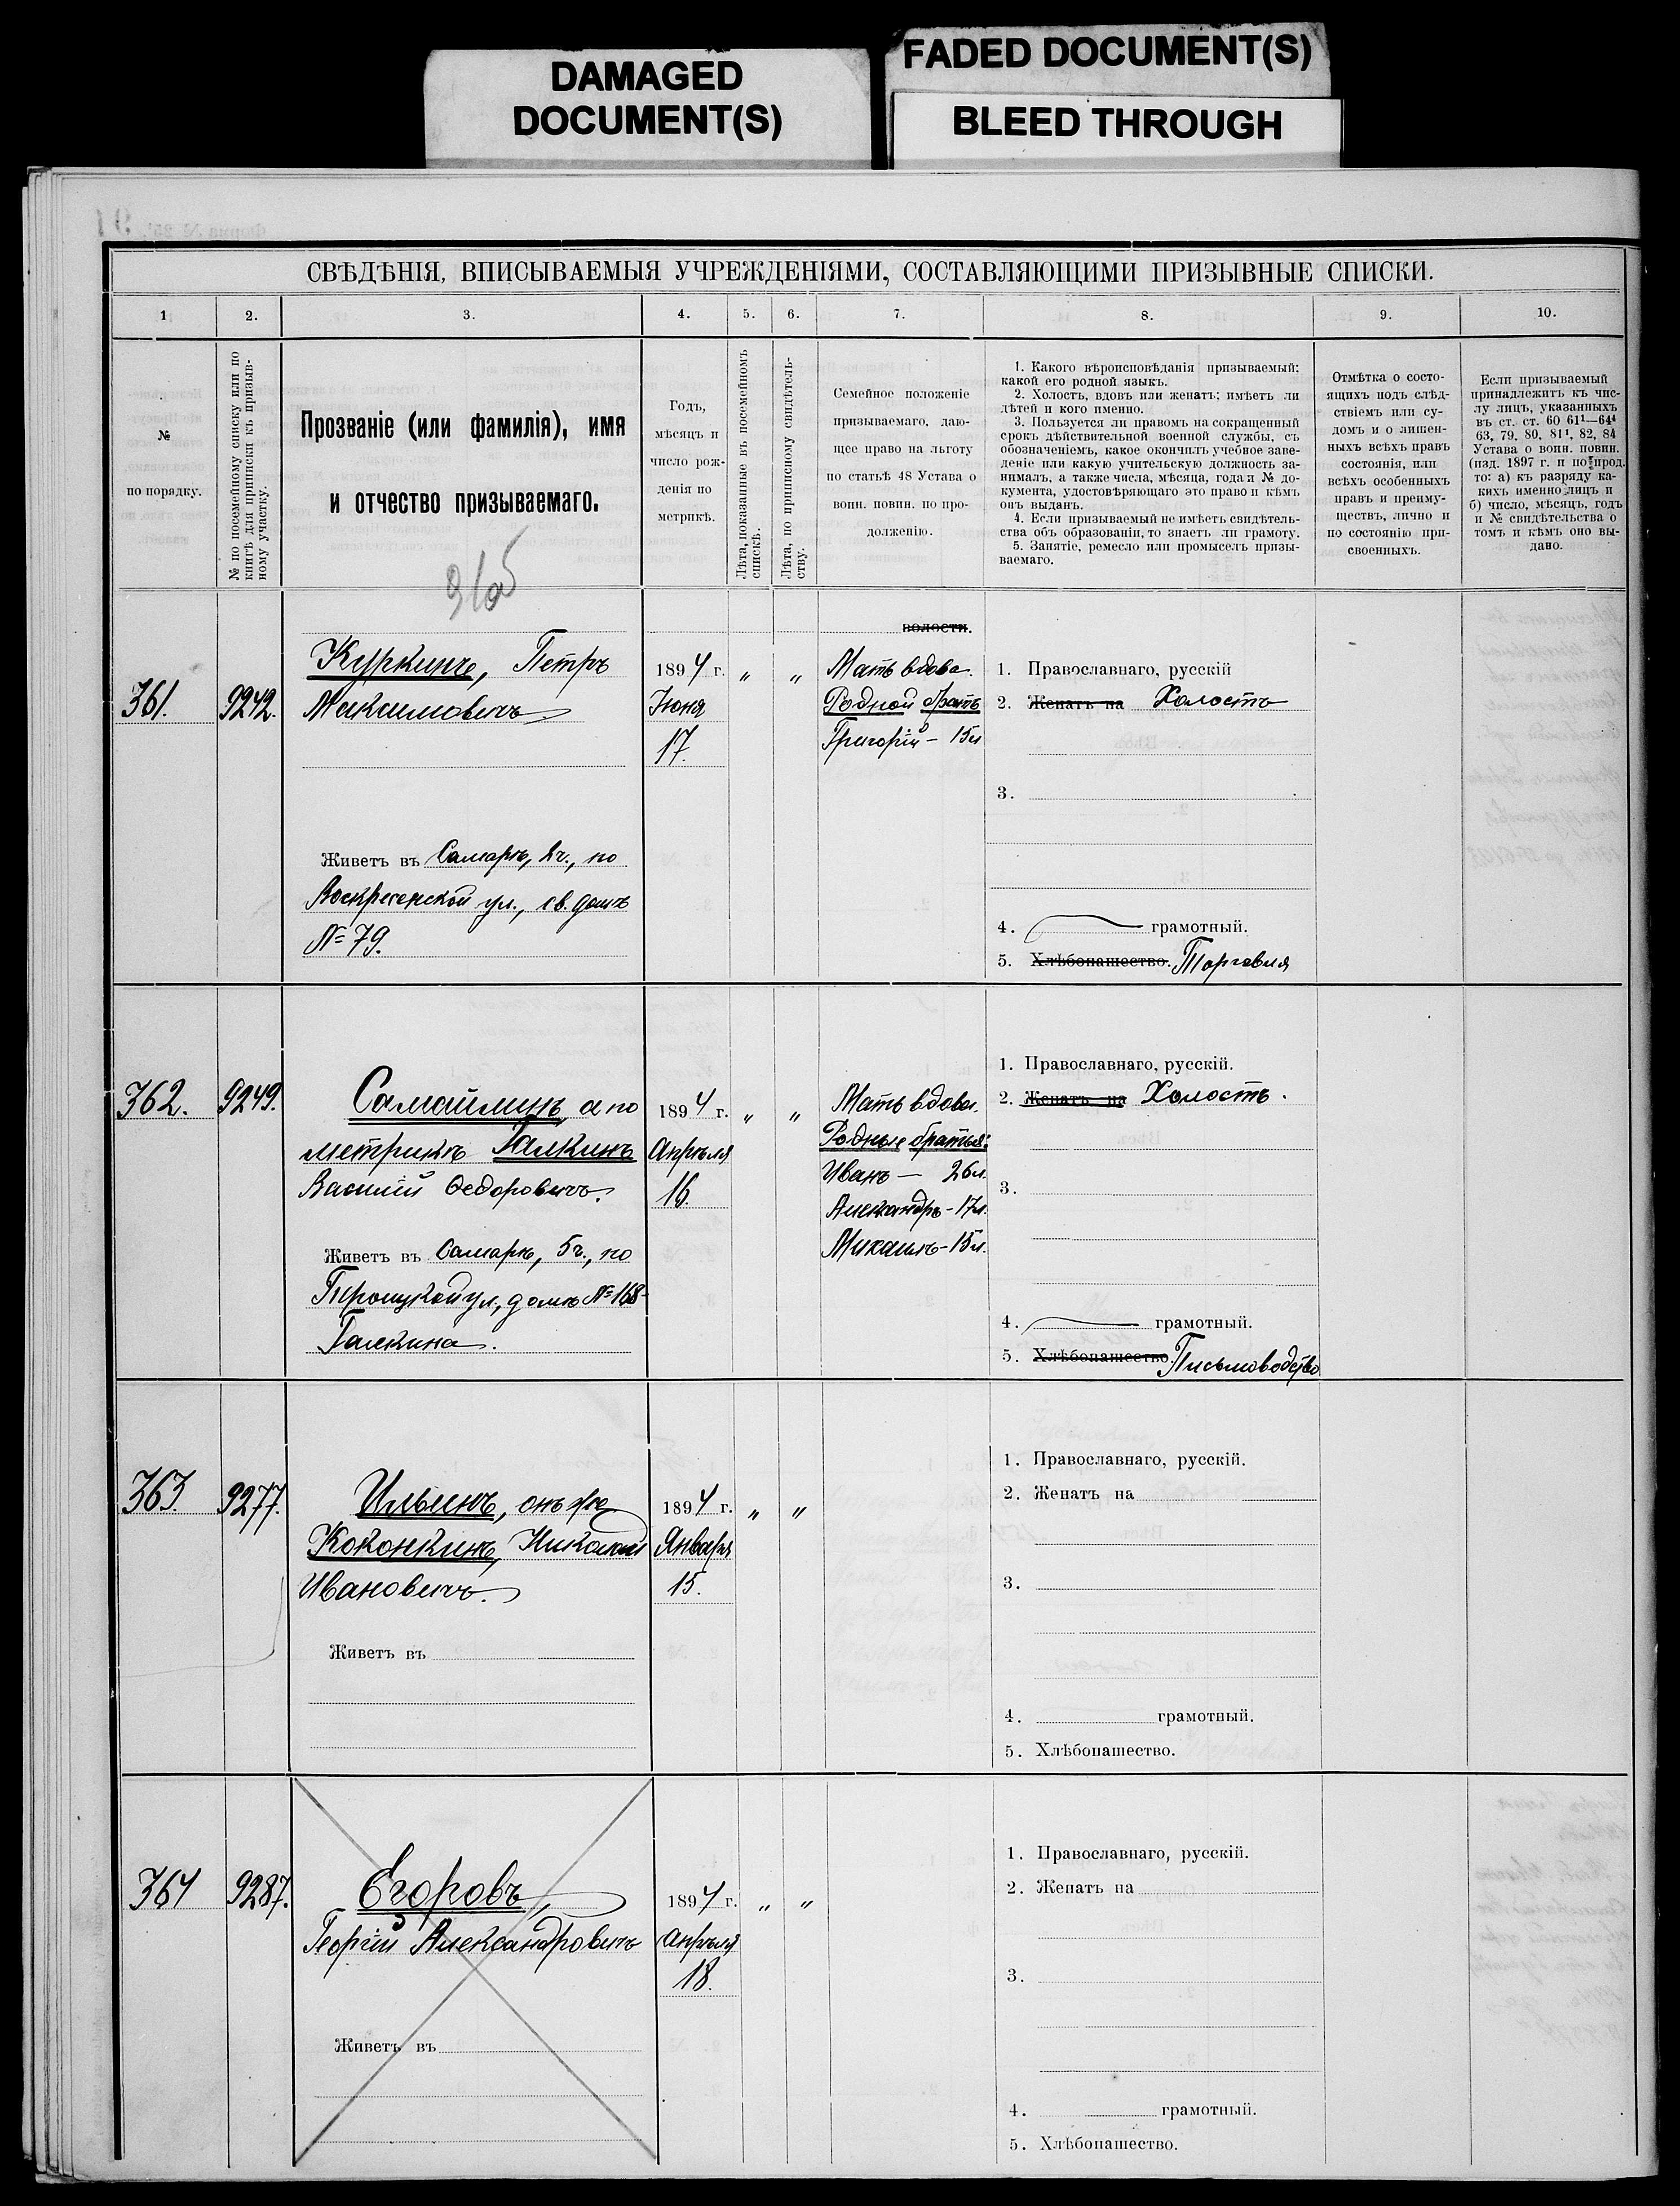 DAMAGED
DOCUMENT(S)
FADED DOCUMENT(S)
BLEED THROUGH
СВѢДѢНІЯ, ВПИСЫВАЕМЫЯ УЧРЕЖДЕНІЯМИ, СОСТАВЛЯЮЩИМИ ПРИЗЫВНЫЕ СПИСКИ.
1
2.
3.
4.
5.
6.
7.
8.
9.
10.
№
по порядку.
№ по посемейному списку или по
книгѣ для приписки къ призыв-
ному участку.
Прозваніе (или фамилія), имя
и отчество призываемаго.
Годъ,
мѣсяцъ и
число рож-
денія по
метрикѣ.
Лѣта, показанные въ посемейномъ
спискѣ.
Лѣта, по приписному свидѣтель-
ству.
Семейное положеніе
призываемаго, даю-
щее право на льготу
по статьѣ 48 Устава о
воин. повин. по про-
долженію.
1. Какого вѣроисповѣданія призываемый;
какой его родной языкъ.
2. Холостъ, вдовъ или женатъ; имѣетъ ли
дѣтей и кого именно.
3. Пользуется ли правомъ на сокращенный
срокъ дѣйствительной военной службы, съ
обозначеніемъ, какое окончилъ учебное заве-
деніе или какую учительскую должность за-
нималъ, а также числа, мѣсяца, года и № до-
кумента, удостовѣряющаго это право и кѣмъ
онъ выданъ.
4. Если призываемый не имѣетъ свидѣтель-
ства объ образованіи, то знаетъ ли грамоту.
5. Занятіе, ремесло или промыселъ призы-
ваемаго.
Отмѣтка о состо-
ящихъ подъ слѣд-
ствіемъ или су-
домъ и о лишен-
ныхъ всѣхъ правъ
состоянія, или
всѣхъ особенныхъ
правъ и преиму-
ществъ, лично и
по состоянію при-
своенныхъ.
Если призываемый
принадлежитъ къ чис-
лу лицъ, указанныхъ
въ ст. ст. 60 61¹—64⁴
63, 79, 80, 81¹, 82, 84
Устава о воин. повин.
(изд. 1897 г. и по прод.
то: а) къ разряду ка-
кихъ именно лицъ и
б) число, мѣсяцъ, годъ
и № свидѣтельства о
томъ и кѣмъ оно вы-
дано.
361.
9242.
Куркинъ, Петръ
Максимовичъ
Живетъ въ Самарѣ, 2ч., по
Воскресенской ул., св. домъ
№ 79.
1894 г.
Іюня
17.
"
"
волости.
Мать вдова.
Родной братъ
Григорій — 15л
1. Православнаго, русскій
2. Женатъ на Холостъ
3.
4. грамотный.
5. Хлѣбопашество. Торговля
362.
9249.
Самайлинъ, а по
метрикѣ Галкинъ
Василій Ѳедоровичъ.
Живетъ въ Самарѣ, 5ч., по
Троицкой ул., домъ № 168
Галкина.
1894 г.
Апрѣля
16.
"
"
Мать вдова.
Родные братья:
Иванъ — 26л.
Александръ - 17л.
Михаилъ - 15л.
1. Православнаго, русскій.
2. Женатъ на Холостъ.
3.
4. грамотный.
5. Хлѣбопашество. Письмоводство
363.
9277.
Ильинъ, онъ же
Коконкинъ, Николай
Ивановичъ.
Живетъ въ
1894 г.
Января
15.
"
"
1. Православнаго, русскій.
2. Женатъ на
3.
4. грамотный.
5. Хлѣбопашество.
364
9287.
Егоровъ,
Георгій Александровичъ
Живетъ въ
1894 г.
Апрѣля
18.
"
"
1. Православнаго, русскій.
2. Женатъ на
3.
4. грамотный.
5. Хлѣбопашество.